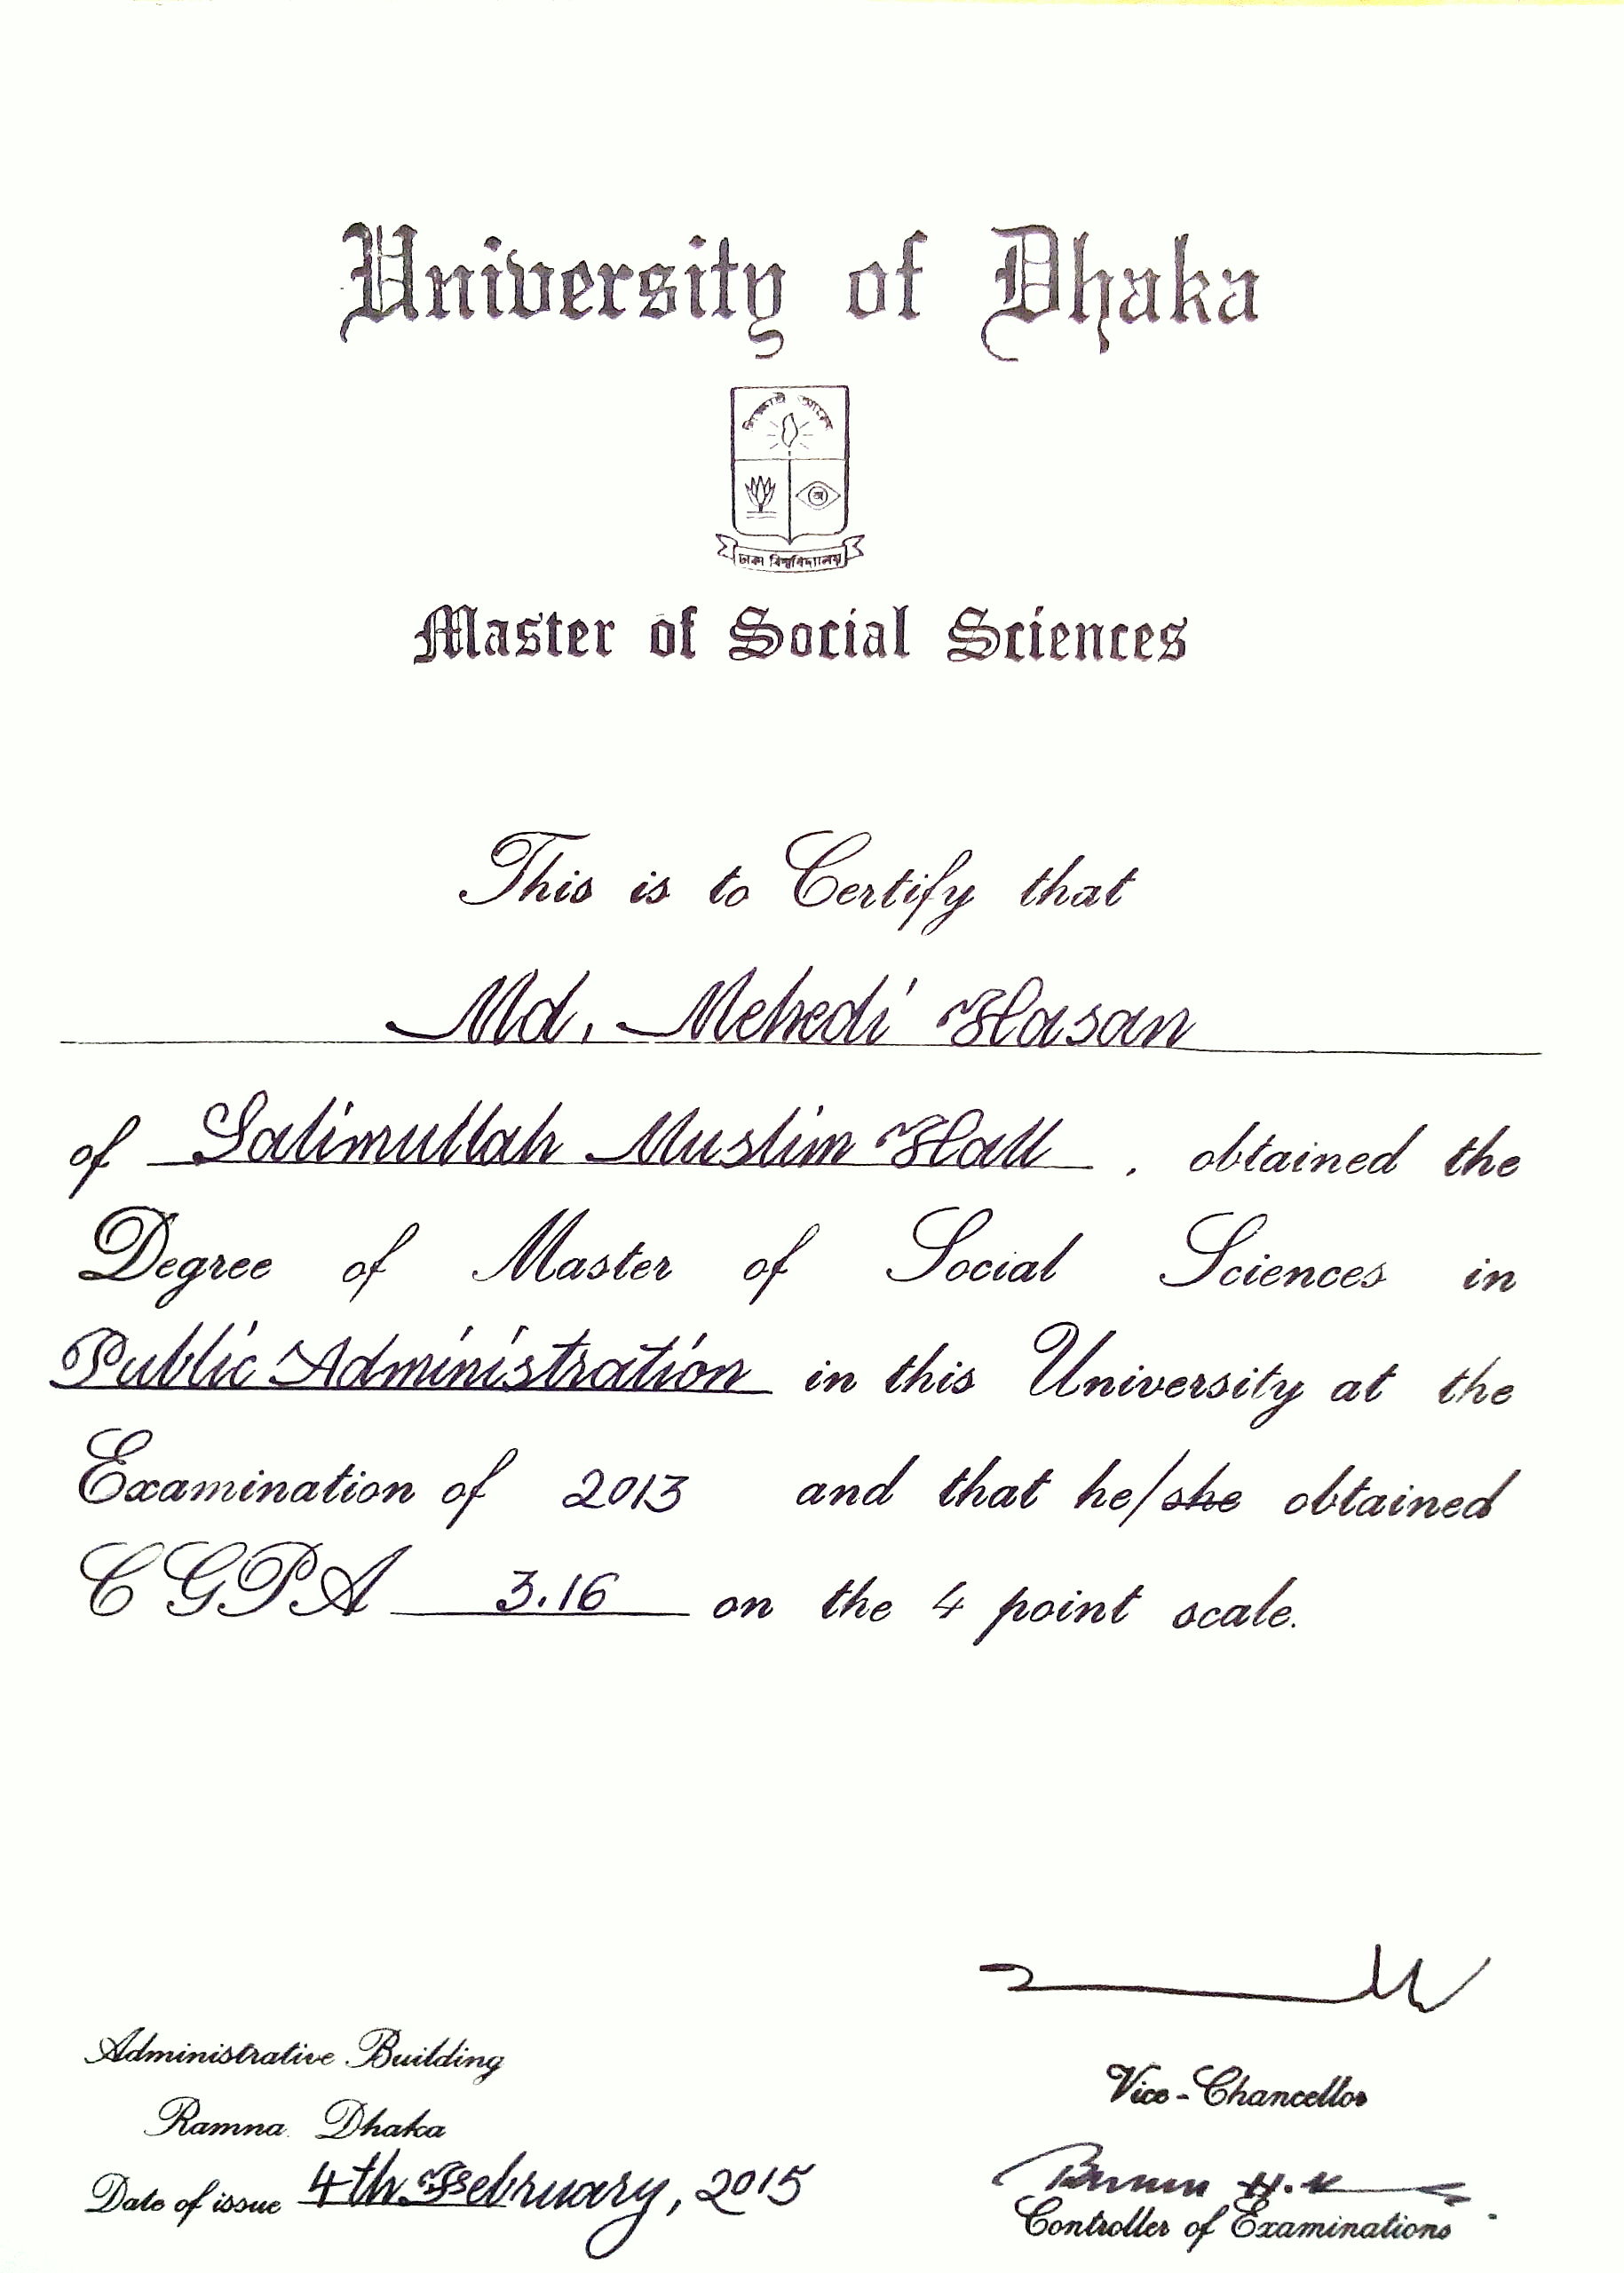 University of Dhaka
শিক্ষাই আলো
ঢাকা বিশ্ববিদ্যালয়
Master of Social Sciences
This is to Certify that
Md. Mehedi Hasan
of Salimullah Muslim Hall, obtained the
Degree of Master of Social Sciences in
Public Administration in this University at the
Examination of 2013 and that he/she obtained
CGPA 3.16 on the 4 point scale.
Administrative Building
Ramna. Dhaka
Date of issue 4th February, 2015
Vice-Chancellor
Controller of Examinations